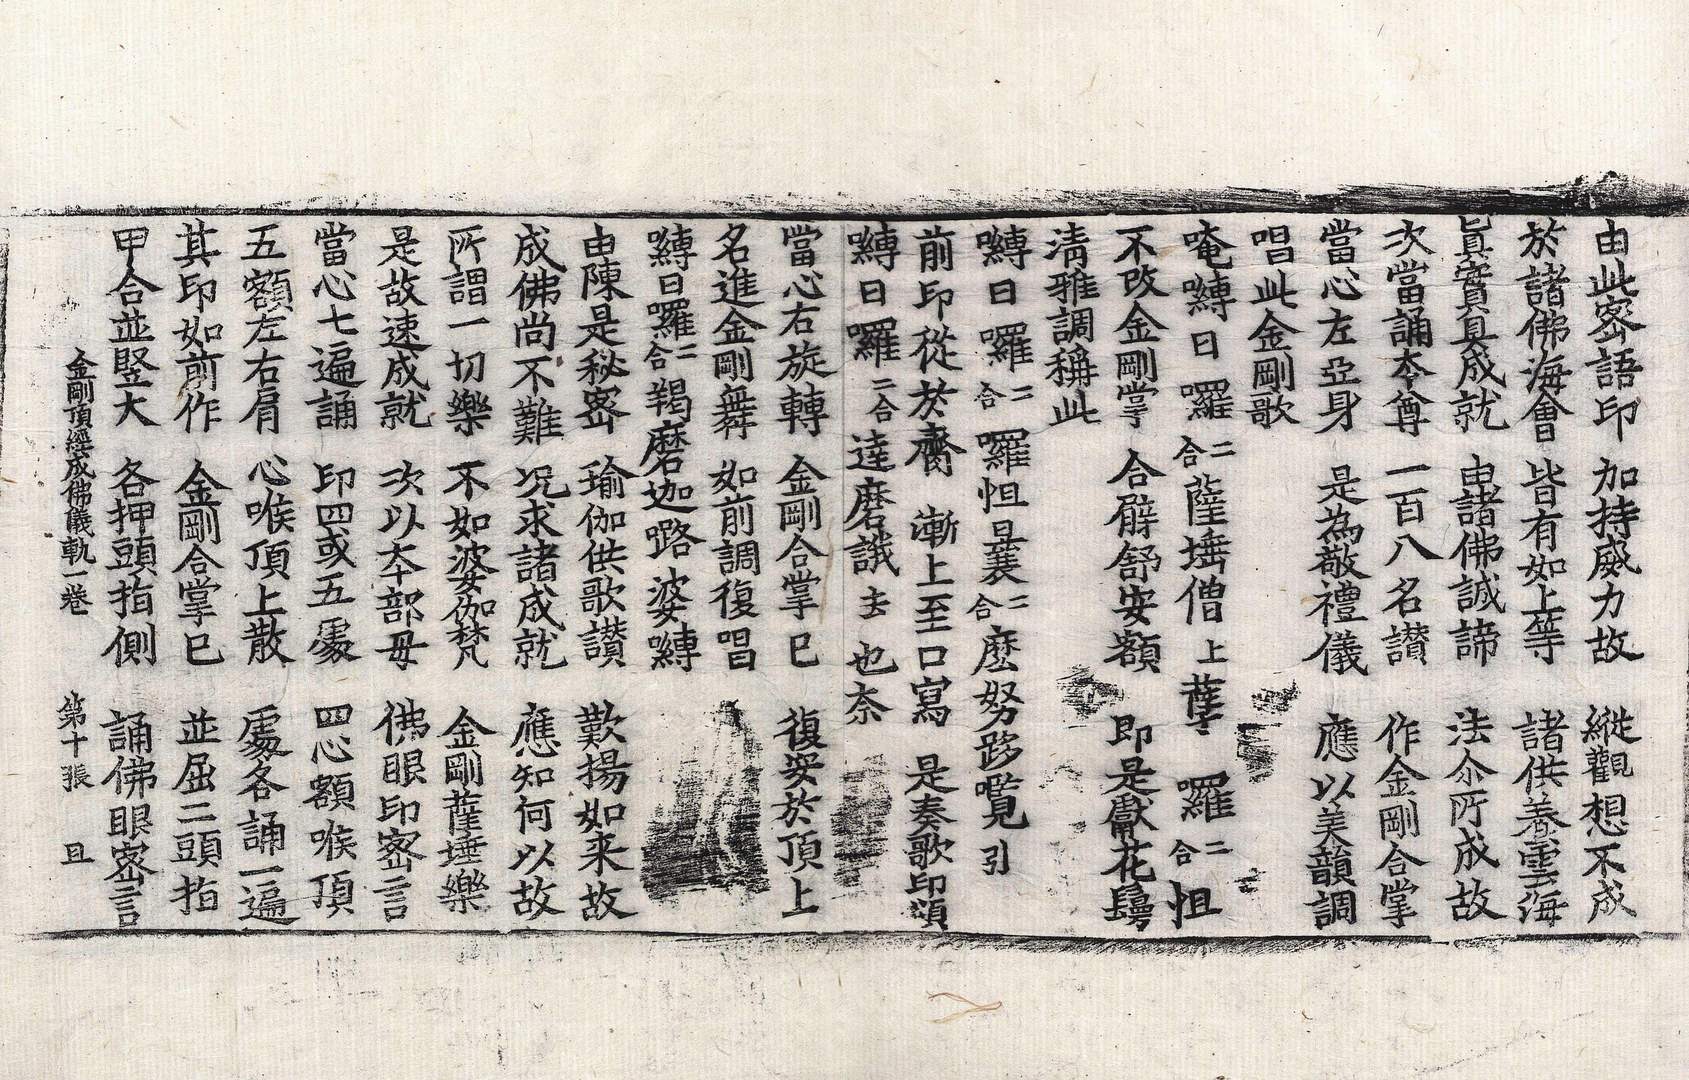 由此密語印　加持威力故　縱觀想不成
於諸佛海會　皆有如上等　諸供養雲海
眞實具成就　由諸佛誠諦　法尒所成故
次當誦夲尊　一百八名讃　作金剛合掌
當心左亞身　是為敬禮儀　應以美韻調
唱此金剛歌
唵嚩日囉二合薩埵僧上薩　囉二合怛
不改金剛掌　合臂舒安額　即是獻花鬘
淸雅調稱此
嚩日囉二合囉怛曩二合麽努跢囕引
前印從於齊　漸上至口寫　是奏歌印頌
嚩日囉二合達磨誐去也奈
當心右旋轉　金剛合掌已　復安於頂上
名進金剛舞　如前調復唱
嚩日囉二合羯磨迦路婆嚩
由陳是秘密　瑜伽供歌讃　歎揚如来故
成佛尚不難　况求諸成就　應知何以故
所謂一切樂　不如婆伽梵　金剛薩埵樂
是故速成就　次以夲部母　佛眼印密言
當心七遍誦　印四或五處　四心額喉頂
五額左右肩　心喉頂上散　處各誦一遍
其印如前作　金剛合掌已　並屈二頭指
甲合並竪大　各押頭指側　誦佛眼密言
金剛頂經成佛儀軌一卷　第十張　且